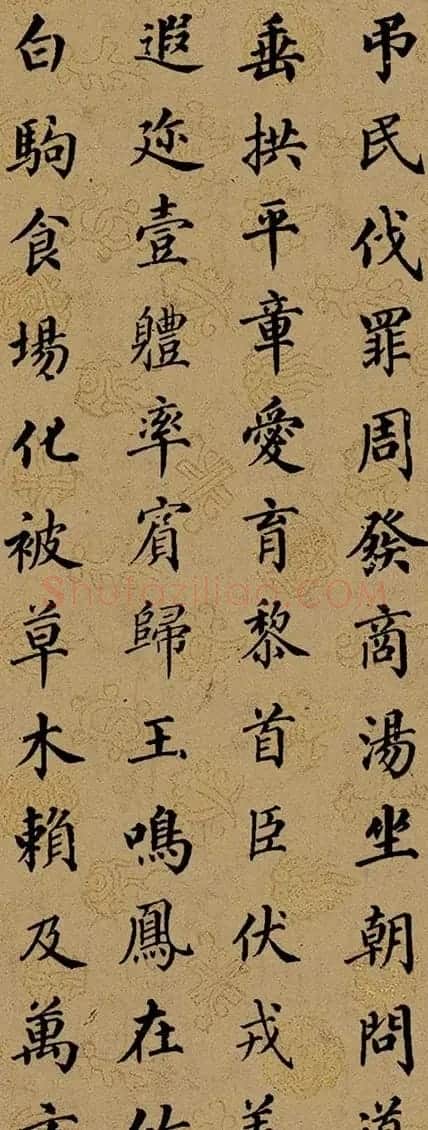 弔民伐罪周發商湯坐朝問道
垂拱平章愛育黎首臣伏戎羌
遐迩壹軆率賓歸王鳴鳳在竹
白駒食場化被草木賴及萬方
Shufaziliao.COM